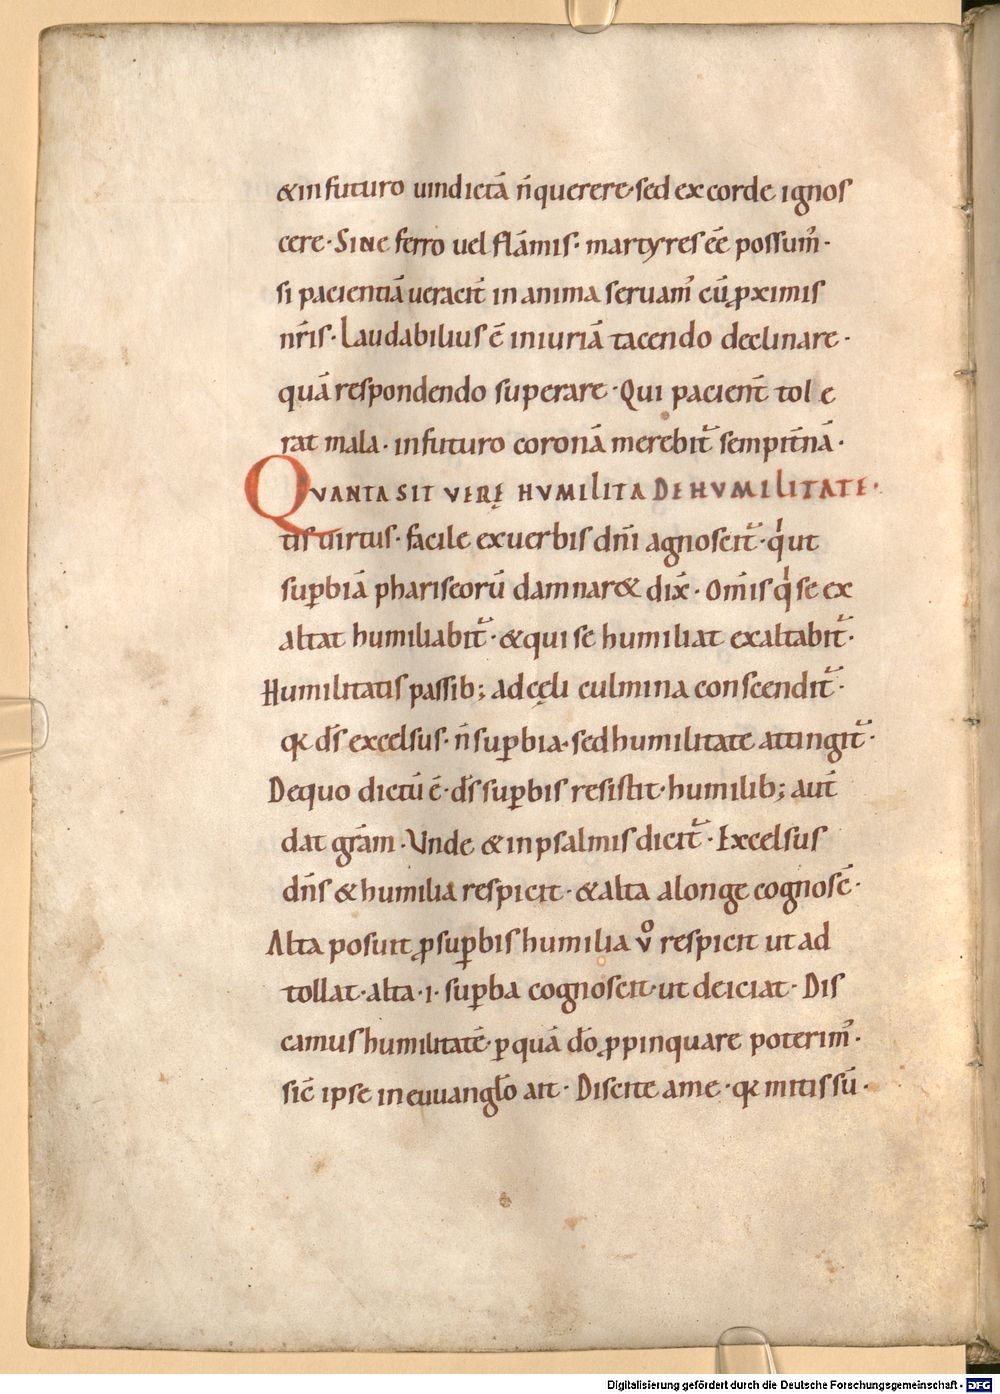 &in futuro uindictā n̄ querere· sed ex corde ignos
cere· Sine ferro uel flāmis· martyres eē possum᾿·
si pacientiā ueracit̄ in anima seruam᾿ cū ꝓximis
nr̄is· Laudabilius ē iniuriā tacendo declinare·
quā respondendo superare· Qui pacient̄ tol e
rat mala· in futuro coronā merebit᷑ sempit̄nā·
QVANTA SIT VERE̜ HVMILITA DE HVMILITATE·
tis uirtus· facile ex uerbis dn̄i agnoscit᷑· qͥ ut
suꝑbiā phariseorū damnar& dix̄· Om̄is qͥ se ex
altat humiliabit᷑· & qui se humiliat exaltabit᷑·
Humilitatis passib; ad cęli culmina conscendit᷑·
qꝛ ds̄ excelsus· n̄ suꝑbia· sed humilitate attingit᷑·
De quo dictū ē· ds̄ suꝑbis resistit· humilib; aut̄
dat grām· Unde & in psalmis dicit᷑· Excelsus
dn̄s & humilia respicit· & alta alonge cognosc̄·
Alta posuit ꝓ suꝑbis humilia v̊ respicit ut ad
tollat· alta ·i· suꝑba cognoscit· ut deiciat· Dis
camus humilitatē· ꝑ quā dō ꝓpinquare poterim᾿·
sic̄ ipse in euuangl̄o ait· Discite a me· qꝛ mitis sū·
Digitalisierung gefördert durch die Deutsche Forschungsgemeinschaft - DFG